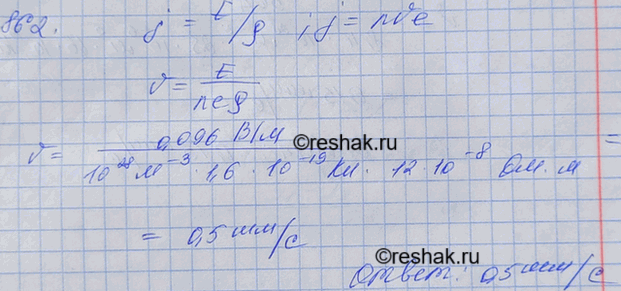 862. j = E/ρ ; j = nve
v = E/neρ
v = 0,096 В/м / 10²⁸ м⁻³ · 1,6 · 10⁻¹⁹ Кл · 12 · 10⁻⁸ Ом · м =
©reshak.ru
= 0,5 мм/с
©reshak.ru
Ответ: 0,5 мм/с